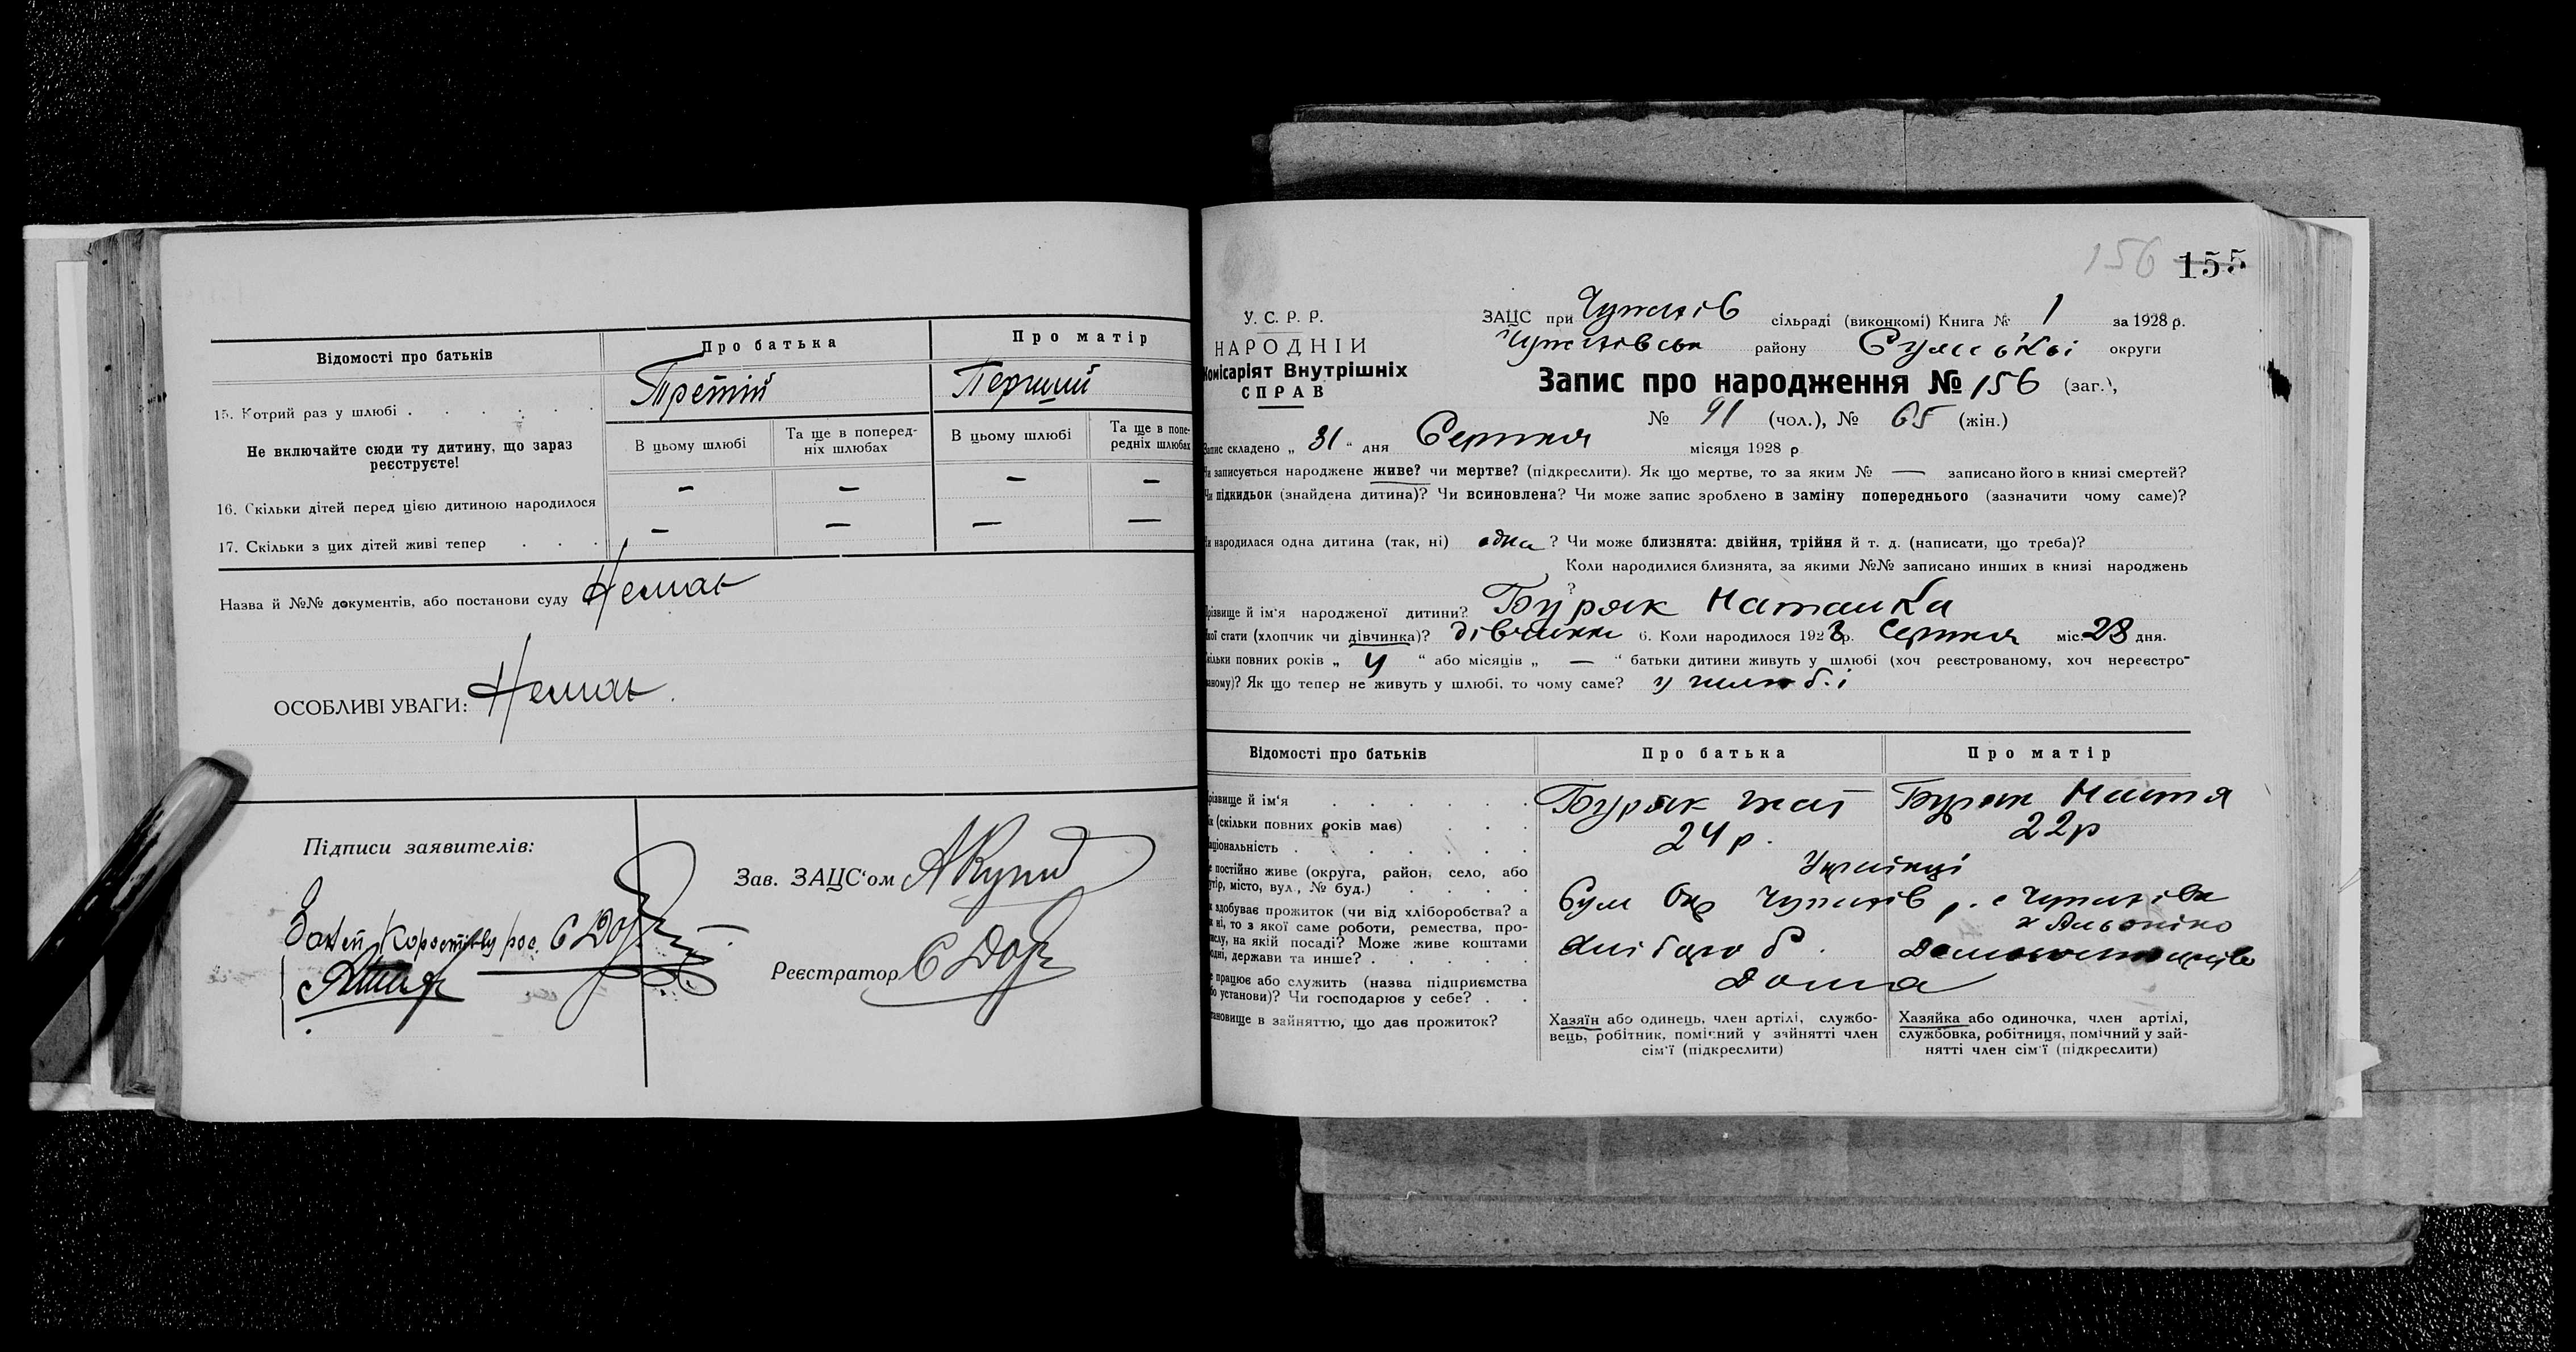 Відомості про батьків
Про батька
Про матір
15. Котрий раз у шлюбі
Третій
Перший
Не включайте сюди ту дитину, що зараз
реєструєте!
В цьому шлюбі
Та ще в поперед-
ніх шлюбах
В цьому шлюбі
Та ще в попе-
редніх шлюбах
16. Скільки дітей перед цією дитиною народилося
— — — —
17. Скільки з цих дітей живі тепер
— — — —
Назва й №№ документів, або постанови суду Немає
ОСОБЛИВІ УВАГИ: Немає.
Підписи заявителів:
Зав. ЗАЦС‘ом
Реєстратор
156 155
У. С. Р. Р.
НАРОДНІЙ
Комісаріят Внутрішніх
СПРАВ
ЗАЦС при сільраді (виконкомі) Книга № 1 за 1928 р.
району Сумської округи
Запис про народження № 156 (заг.),
№ 91 (чол.), № 65 (жін.)
Запис складено „ 31 “ дня Серпня місяця 1928 р
Чи записується народжене живе? чи мертве? (підкреслити). Як що мертве, то за яким № — записано його в книзі смертей?
Чи підкидьок (знайдена дитина)? Чи всиновлена? Чи може запис зроблено в заміну попереднього (зазначити чому саме)?
Чи народилася одна дитина (так, ні) одна ? Чи може близнята: двійня, трійня й т. д. (написати, що треба)?
Коли народилися близнята, за якими №№ записано инших в книзі народжень
?
Прізвище й ім‘я народженої дитини? Буряк Наталка
Якої стати (хлопчик чи дівчинка)? дівчинка 6. Коли народилося 1928р. Серпня міс. 28 дня.
Скільки повних років „ 4 “ або місяців „ — “ батьки дитини живуть у шлюбі (хоч реєстрованому, хоч нереєстро-
ваному)? Як що тепер не живуть у шлюбі, то чому саме? у шлюбі
Відомості про батьків
Про батька
Про матір
Прізвище й ім‘я
Буряк
Буряк Настя
Вік (скільки повних років має)
24 р.
22р
Національність
Українці
Де постійно живе (округа, район, село, або
хутір, місто, вул., № буд.)
Сум Окр р. с
Як здобуває прожиток (чи від хліборобства? а
як ні, то з якої саме роботи, ремества, про-
мислу, на якій посаді? Може живе коштами
родні, держави та инше?
Де працює або служить (назва підприємства
або установи)? Чи господарює у себе?
Дома
Становище в зайняттю, що дає прожиток?
Хазяїн або одинець, член артілі, службо-
вець, робітник, помічний у зайнятті член
сім‘ї (підкреслити)
Хазяйка або одиночка, член артілі,
службовка, робітниця, помічний у зай-
нятті член сім‘ї (підкреслити)